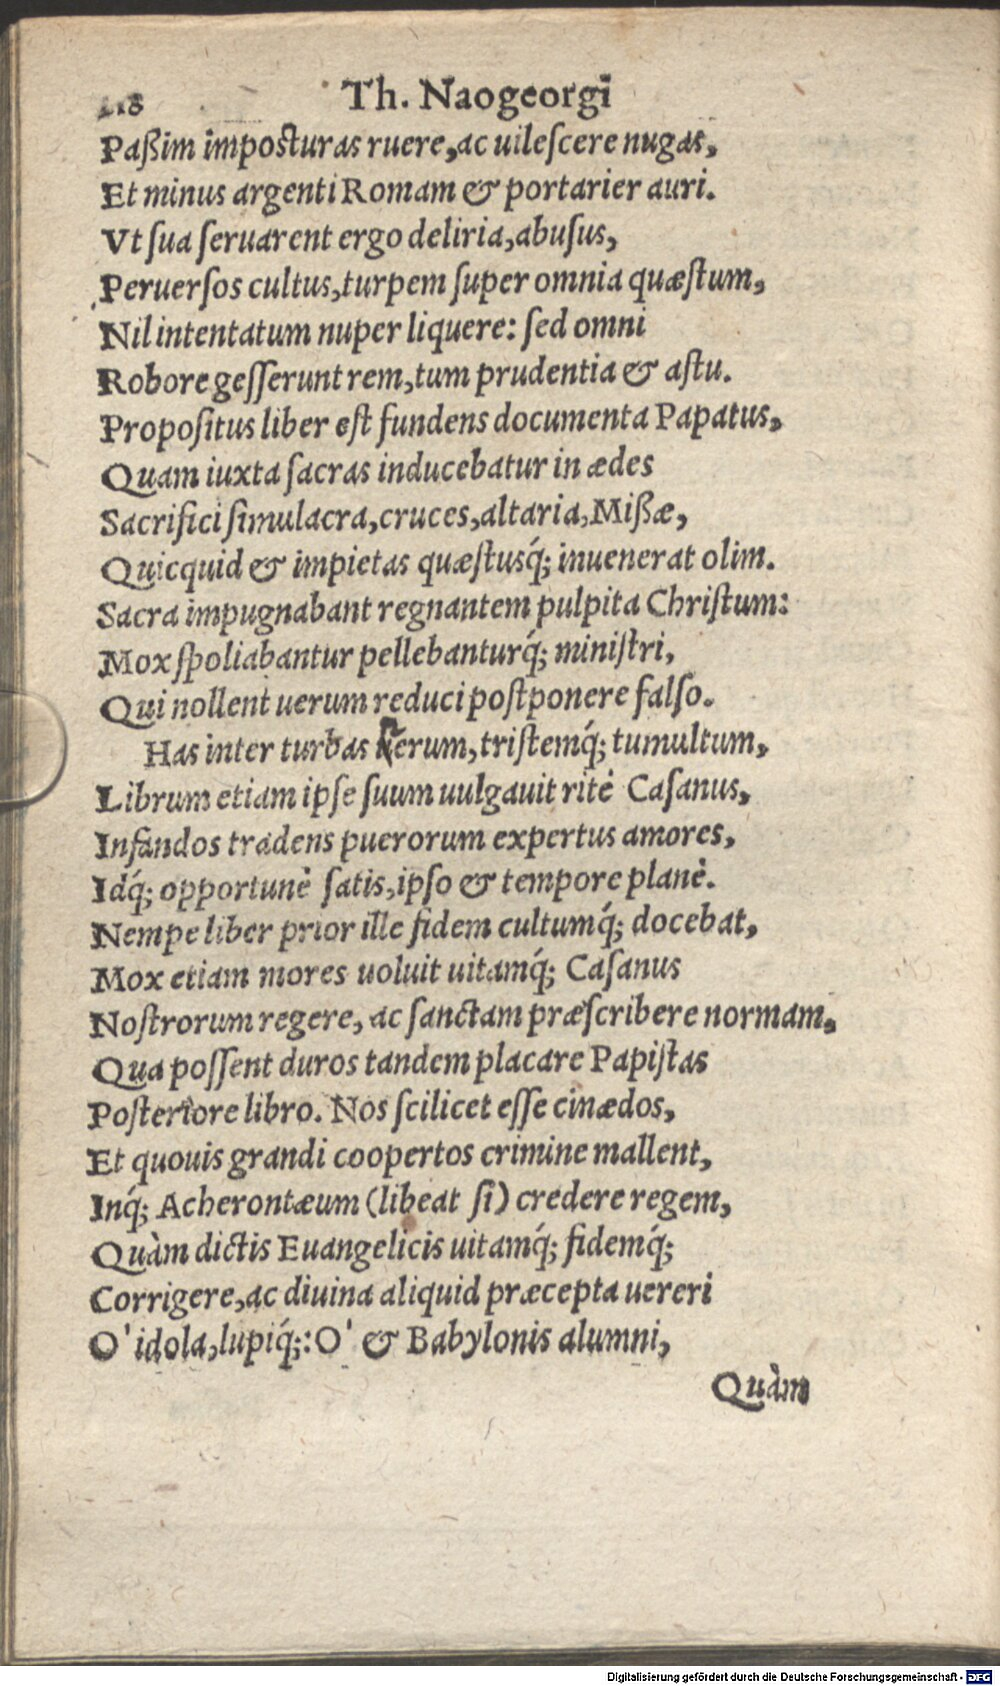 218 Th. Naogeorgi
Paßim imposturas ruere, ac uilescere nugas,
Et minus argenti Romam & portarier auri.
Vt sua seruarent ergo deliria, abusus,
Peruersos cultus, turpem super omnia quæstum,
Nil intentatum nuper liquere: sed omni
Robore gesserunt rem, tum prudentia & astu.
Propositus liber est fundens documenta Papatus,
Quam iuxta sacras inducebatur in ædes
Sacrifici simulacra, cruces, altaria, Mißæ,
Quicquid & impietas quæstusq́; inuenerat olim.
Sacra impugnabant regnantem pulpita Christum:
Mox spoliabantur pellebanturq́; ministri,
Qui nollent uerum reduci postponere falso.
Has inter turbas rerum, tristemq́; tumultum,
Librum etiam ipse suum uulgauit ritè Casanus,
Infandos tradens puerorum expertus amores,
Idq́; opportunè satis, ipso & tempore planè.
Nempe liber prior ille fidem cultumq́; docebat,
Mox etiam mores uoluit uitamq́; Casanus
Nostrorum regere, ac sanctam præscribere normam,
Qua possent duros tandem placare Papistas
Posteriore libro. Nos scilicet esse cinædos,
Et quouis grandi coopertos crimine mallent,
Inq́; Acherontæum (libeat si) credere regem,
Quàm dictis Euangelicis uitamq́; fidemq́;
Corrigere, ac diuina aliquid præcepta uereri
O' idola, lupiq́;: O' & Babylonis alumni,
Quàm
Digitalisierung gefördert durch die Deutsche Forschungsgemeinschaft - DFG